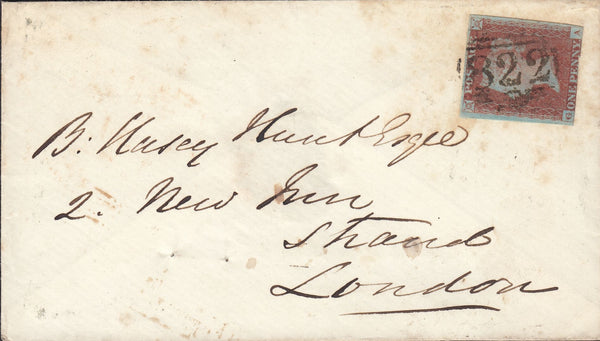 822
ONE PENNY
B: Hasey Hunt Esqre
2. New Inn
Strand
London